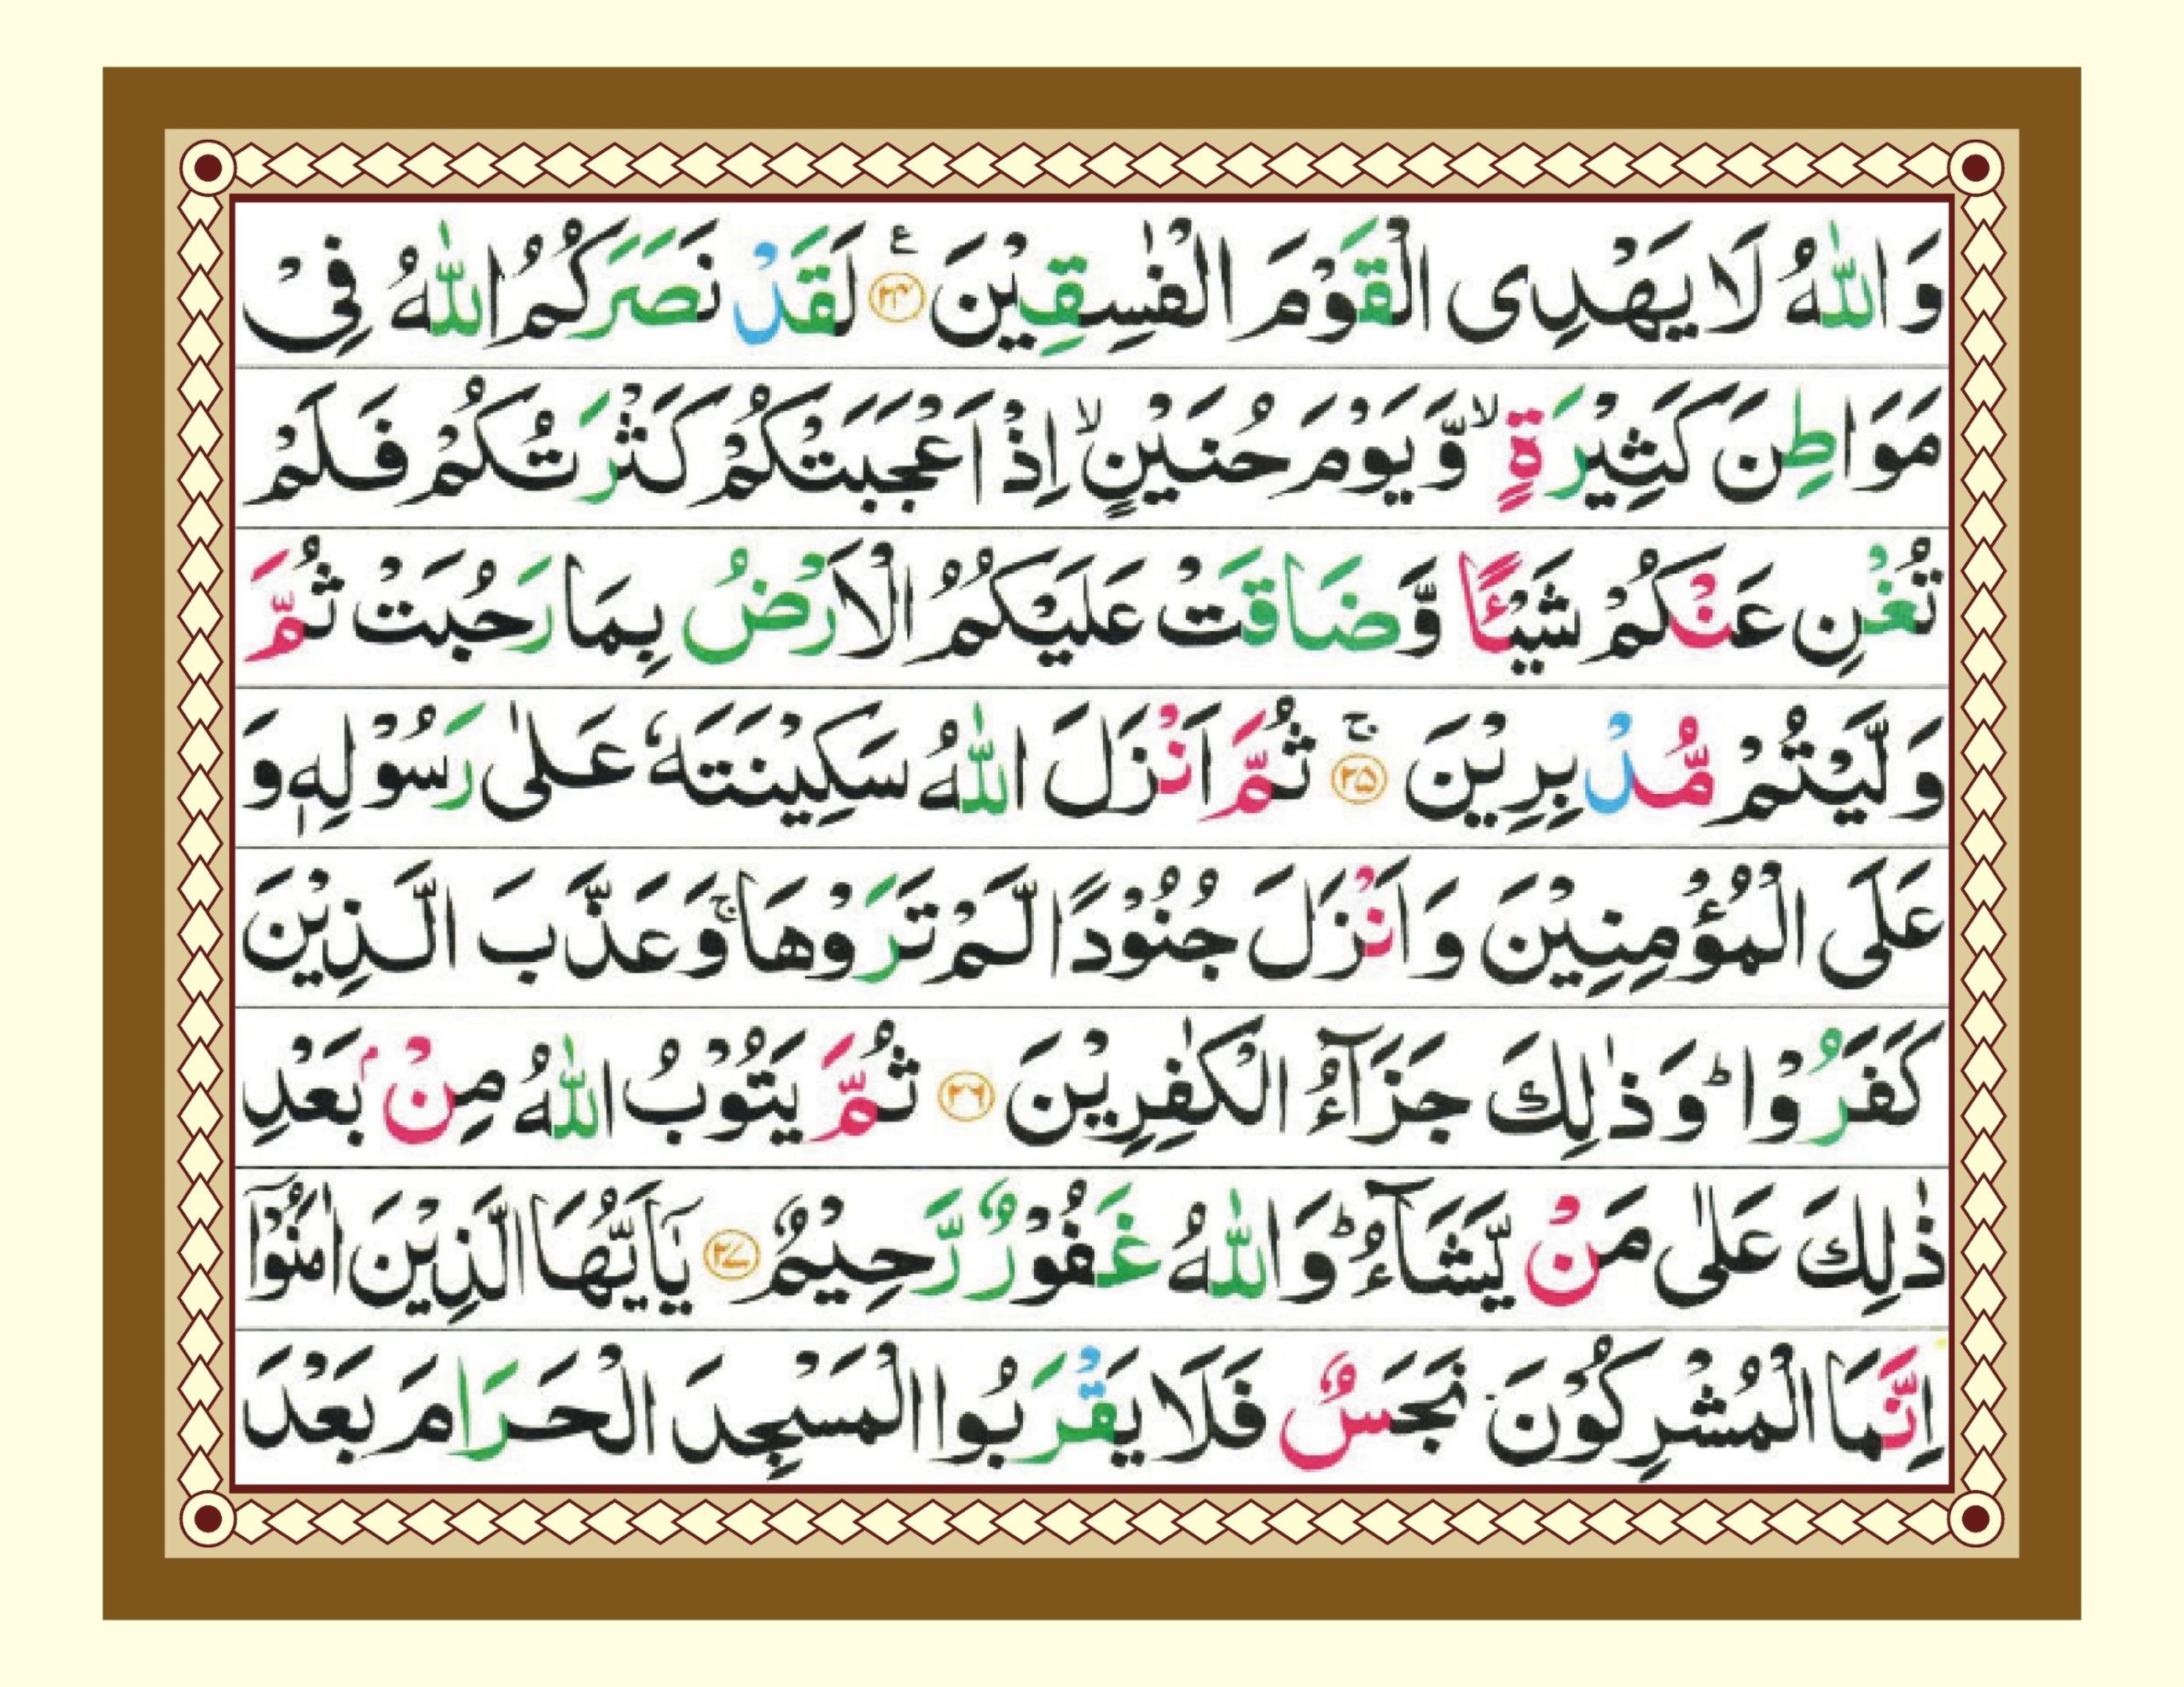 وَاللّٰهُ لَا يَهْدِى الْقَوْمَ الْفٰسِقِيْنَ ؏ ۲۴ لَقَدْ نَصَرَكُمُ اللّٰهُ فِىْ
مَوَاطِنَ كَثِيْرَةٍ ۙ وَّيَوْمَ حُنَيْنٍ ۙ اِذْ اَعْجَبَتْكُمْ كَثْرَتُكُمْ فَلَمْ
تُغْنِ عَنْكُمْ شَيْـًٔا وَّضَاقَتْ عَلَيْكُمُ الْاَرْضُ بِمَا رَحُبَتْ ثُمَّ
وَلَّيْتُمْ مُّدْبِرِيْنَ ۚ ۲۵ ثُمَّ اَنْزَلَ اللّٰهُ سَكِيْنَتَهٗ عَلٰى رَسُوْلِهٖ وَ
عَلَى الْمُؤْمِنِيْنَ وَاَنْزَلَ جُنُوْدًا لَّمْ تَرَوْهَا ۚ وَعَذَّبَ الَّذِيْنَ
كَفَرُوْا ؕ وَذٰلِكَ جَزَآءُ الْكٰفِرِيْنَ ۲۶ ثُمَّ يَتُوْبُ اللّٰهُ مِنْۢ بَعْدِ
ذٰلِكَ عَلٰى مَنْ يَّشَآءُ ؕ وَاللّٰهُ غَفُوْرٌ رَّحِيْمٌ ۲۷ يٰۤاَيُّهَا الَّذِيْنَ اٰمَنُوْۤا
اِنَّمَا الْمُشْرِكُوْنَ نَجَسٌ فَلَا يَقْرَبُوا الْمَسْجِدَ الْحَرَامَ بَعْدَ